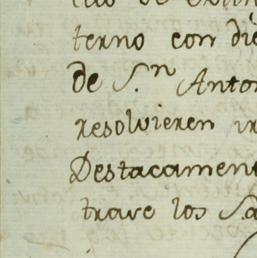 terno con die
de S.n Anton
resolvieren ir
Destacament
trave los Sa